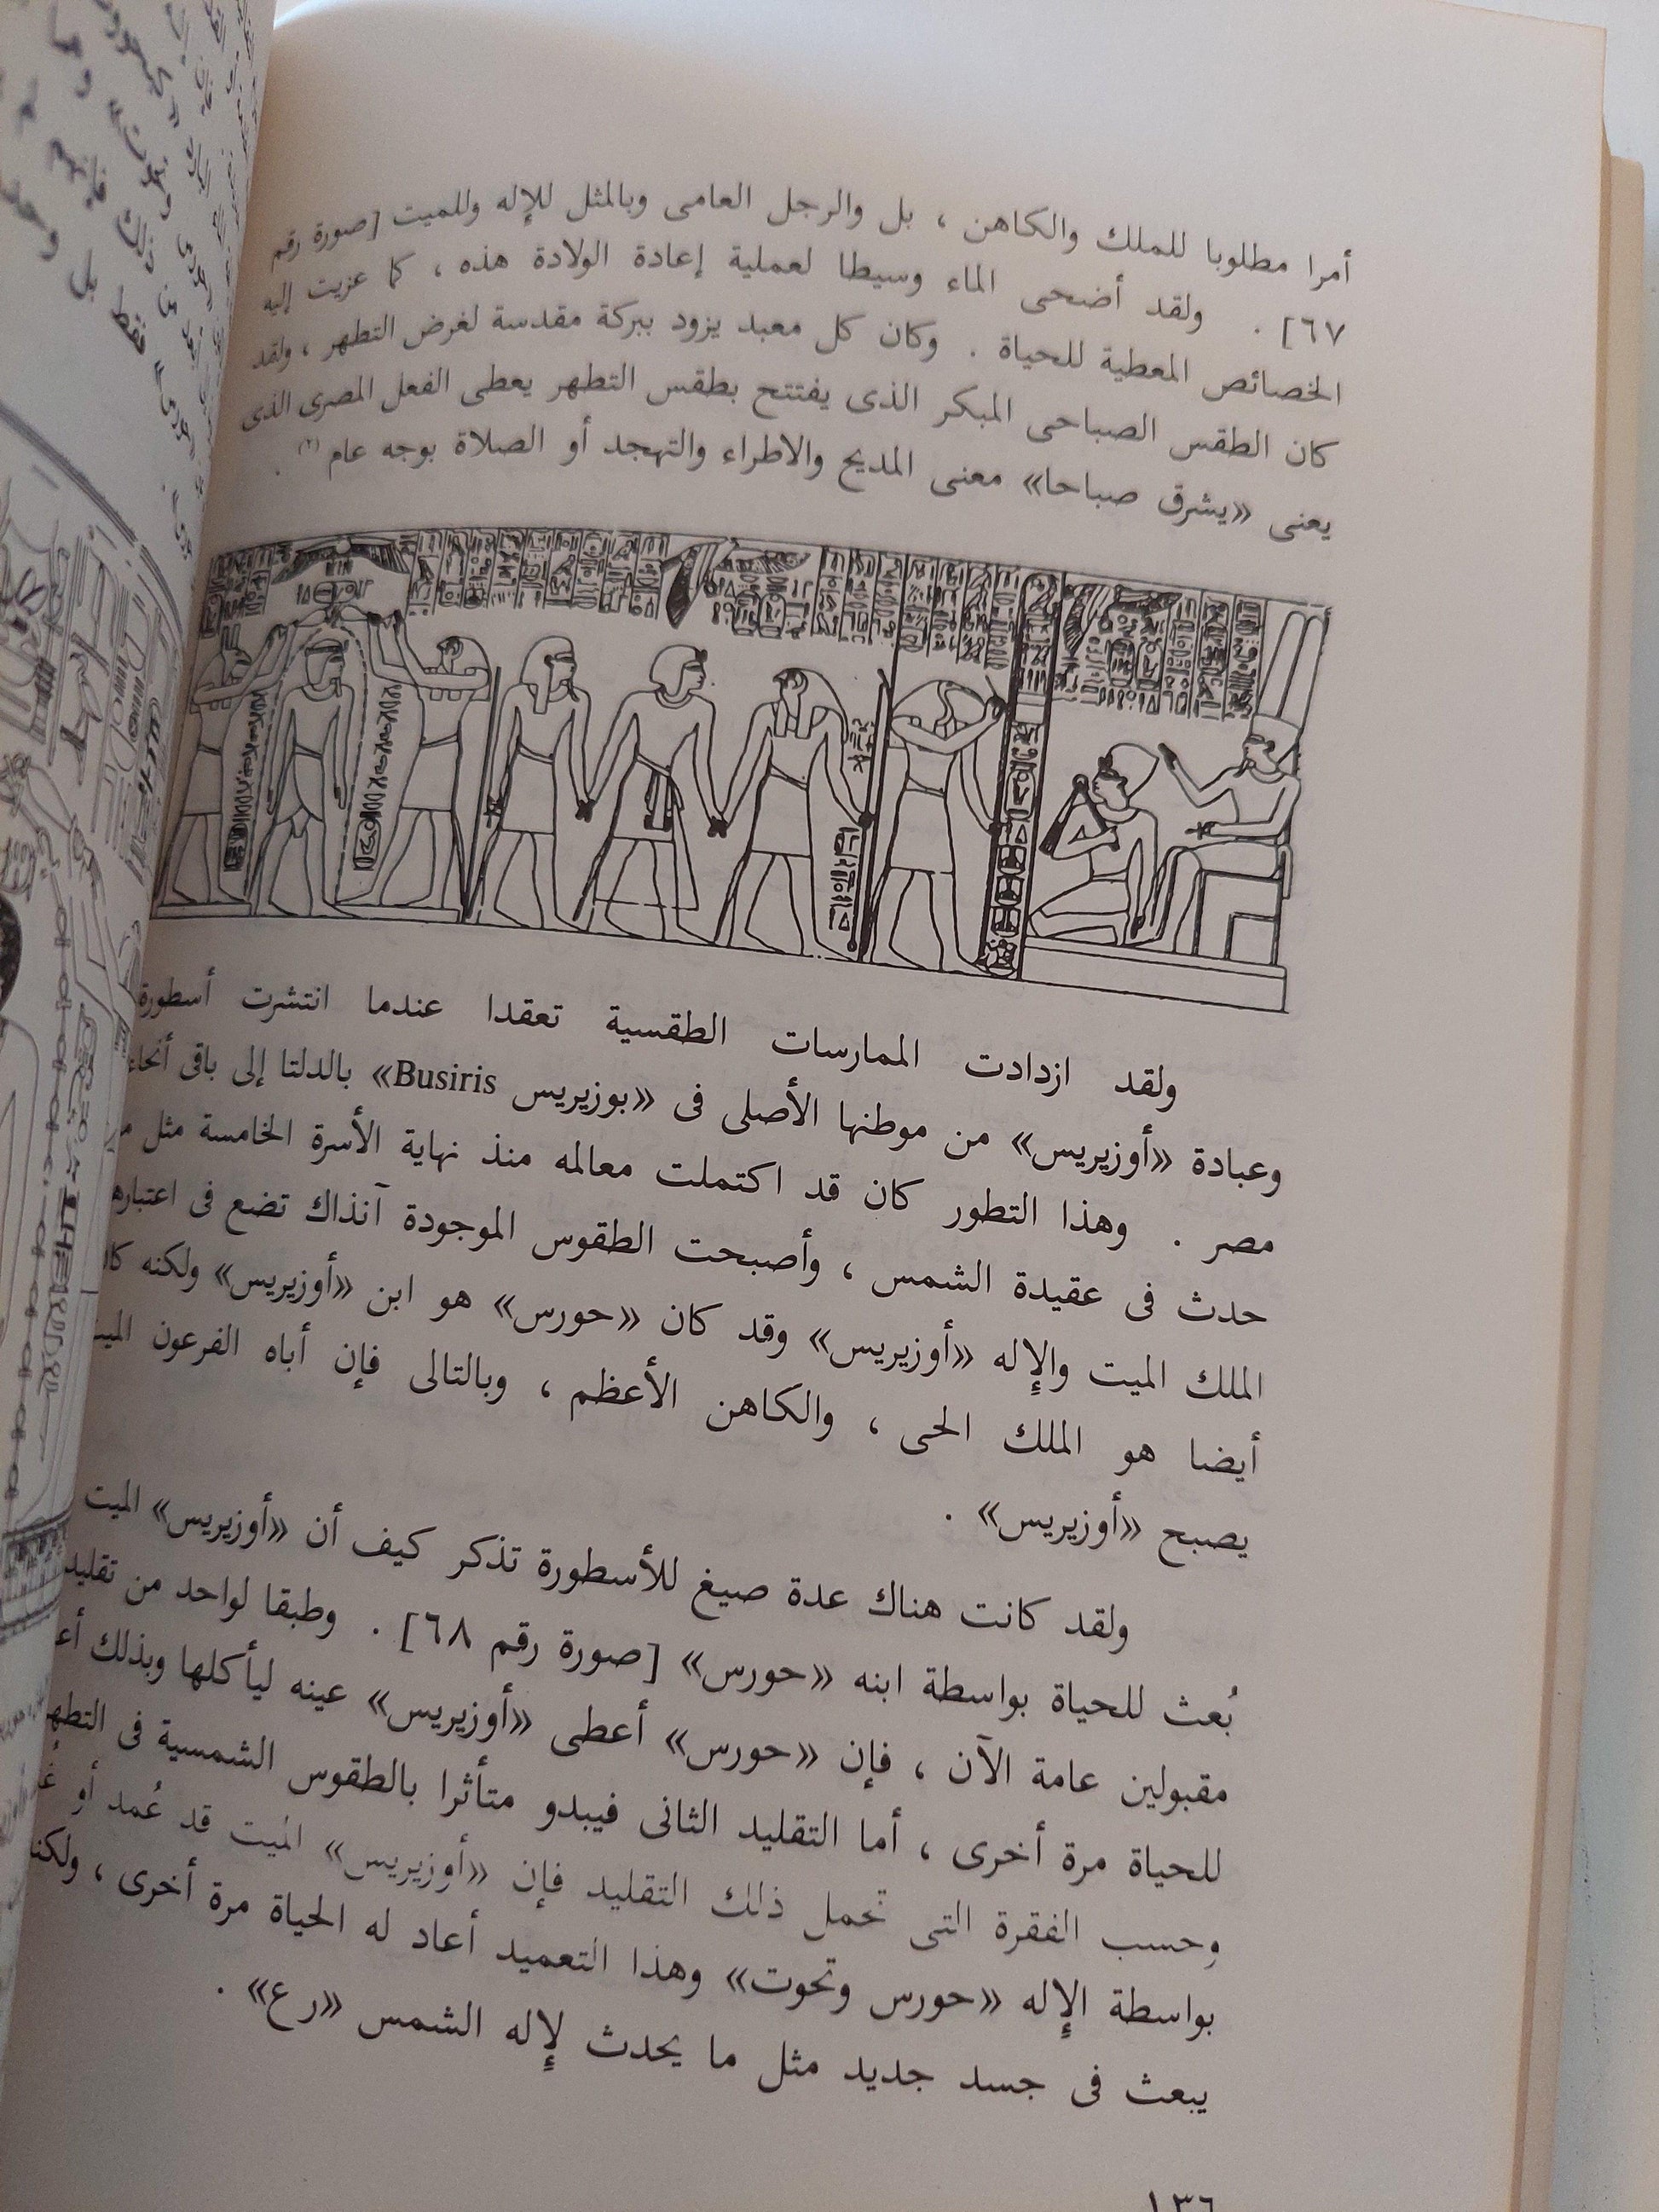 أمرا مطلوبا للملك والكاهن ، بل والرجل العامى وبالمثل للإله وللميت [صورة رقم
٦٧] . ولقد أضحى الماء وسيطا لعملية إعادة الولادة هذه ، كما عزيت إليه
الخصائص المعطية للحياة . وكان كل معبد يزود ببركة مقدسة لغرض التطهر ، ولقد
كان الطقس الصباحى المبكر الذى يفتتح بطقس التطهر يعطى الفعل المصرى الذى
يعنى «يشرق صباحا» معنى المديح والاطراء والتهجد أو الصلاة بوجه عام (٢) .
ولقد ازدادت الممارسات الطقسية تعقدا عندما انتشرت أسطورة
وعبادة «أوزيريس» من موطنها الأصلى فى «بوزيريس Busiris» بالدلتا إلى باقى أنحاء
مصر . وهذا التطور كان قد اكتملت معالمه منذ نهاية الأسرة الخامسة مثل
حدث فى عقيدة الشمس ، وأصبحت الطقوس الموجودة آنذاك تضع فى
الملك الميت والإله «أوزيريس» وقد كان «حورس» هو ابن «أوزيريس» ولكنه
أيضا هو الملك الحى ، والكاهن الأعظم ، وبالتالى فإن أباه الفرعون
يصبح «أوزيريس» .
ولقد كانت هناك عدة صيغ للأسطورة تذكر كيف أن «أوزيريس» الميت
بُعث للحياة بواسطة ابنه «حورس» [صورة رقم ٦٨] . وطبقا لواحد من
مقبولين عامة الآن ، فإن «حورس» أعطى «أوزيريس» عينه ليأكلها وبذلك
للحياة مرة أخرى ، أما التقليد الثانى فيبدو متأثرا بالطقوس الشمسية فى
وحسب الفقرة التى تحمل ذلك التقليد فإن «أوزيريس» الميت قد عُمد أو
بواسطة الإله «حورس وتحوت» وهذا التعميد أعاد له الحياة مرة أخرى ،
يبعث فى جسد جديد مثل ما يحدث لإله الشمس «رع» .
١٣٦